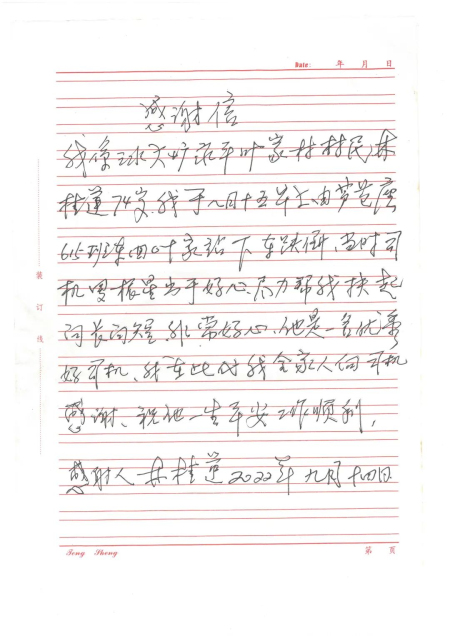 Date: 年 月 日
感谢信
我系 村民林
桂莲74岁,我于八月十五 上由芦
615班车回叶家站下车跌倒,当时司
机 根星出于好心,尽力帮我扶起
问长问短,非常好心,他是一名优秀
好司机,我在此代我全家人向司机
感谢、祝他一生平安工作顺利,
感谢人 林桂莲2022年九月十四日
装 订 线
第 页